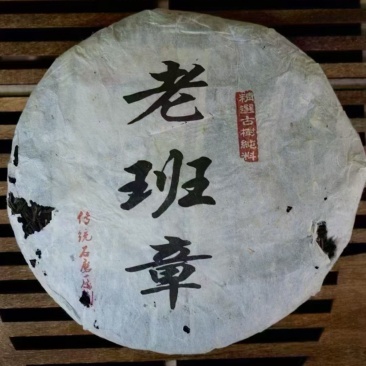 老班章
精選古樹純料
传统石磨压制